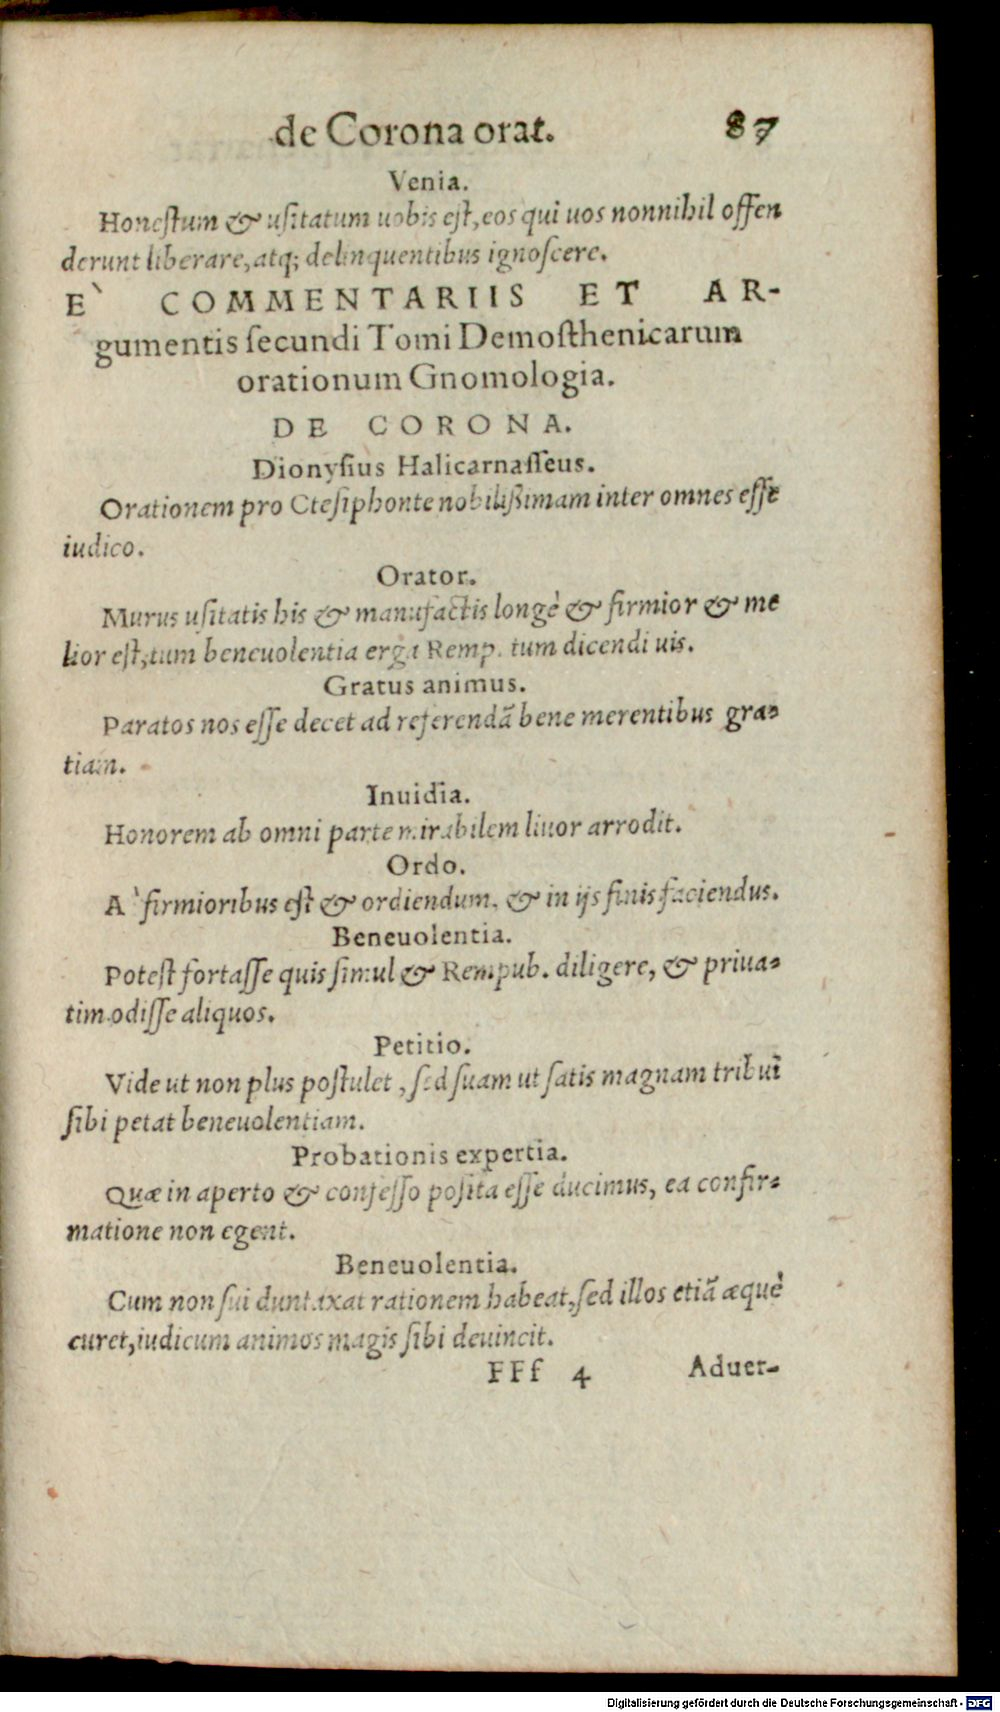 de Corona orat. 87
Venia.
Honeſtum & uſitatum uobis eſt, eos qui uos nonnihil offen
derunt liberare, atq; delinquentibus ignoſcere.
E` COMMENTARIIS ET AR-
gumentis ſecundi Tomi Demoſthenicarum
orationum Gnomologia.
DE CORONA.
Dionyſius Halicarnaſſeus.
Orationem pro Cteſiphonte nobilißimam inter omnes eſſe
iudico.
Orator.
Murus uſitatis his & manufactis longè & firmior & me
lior eſt, tum beneuolentia erga Remp. tum dicendi uis.
Gratus animus.
Paratos nos eſſe decet ad referendã bene merentibus gra-
tiam.
Inuidia.
Honorem ab omni parte mirabilem liuor arrodit.
Ordo.
A` firmioribus eſt & ordiendum, & in ijs finis faciendus.
Beneuolentia.
Poteſt fortaſſe quis ſimul & Rempub. diligere, & priua-
tim odiſſe aliquos.
Petitio.
Vide ut non plus poſtulet, ſed ſuam ut ſatis magnam tribui
ſibi petat beneuolentiam.
Probationis expertia.
Quæ in aperto & confeſſo poſita eſſe ducimus, ea confir-
matione non egent.
Beneuolentia.
Cum non ſui duntaxat rationem habeat, ſed illos etiã æquè
curet, iudicum animos magis ſibi deuincit.
FFf 4 Aduer-
Digitalisierung gefördert durch die Deutsche Forschungsgemeinschaft - DFG